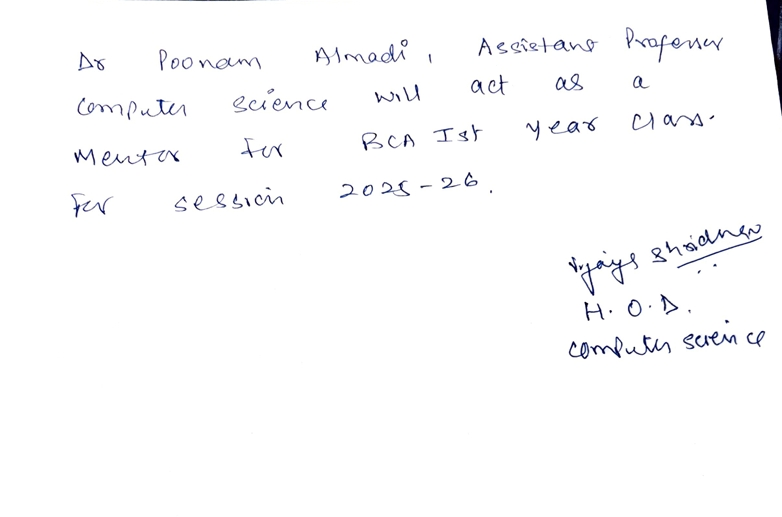 Dr Poonam Almadi, Assistant Professor
Computer Science will act as a
Mentor for BCA Ist year class.
For session 2025-26.
H.O.D.
Computer Science